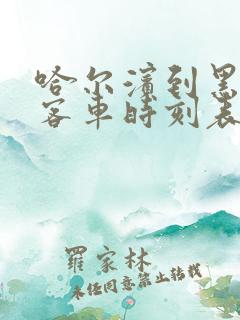 哈尔滨到黑
客车时刻表
羅家林
未经同意禁止转载